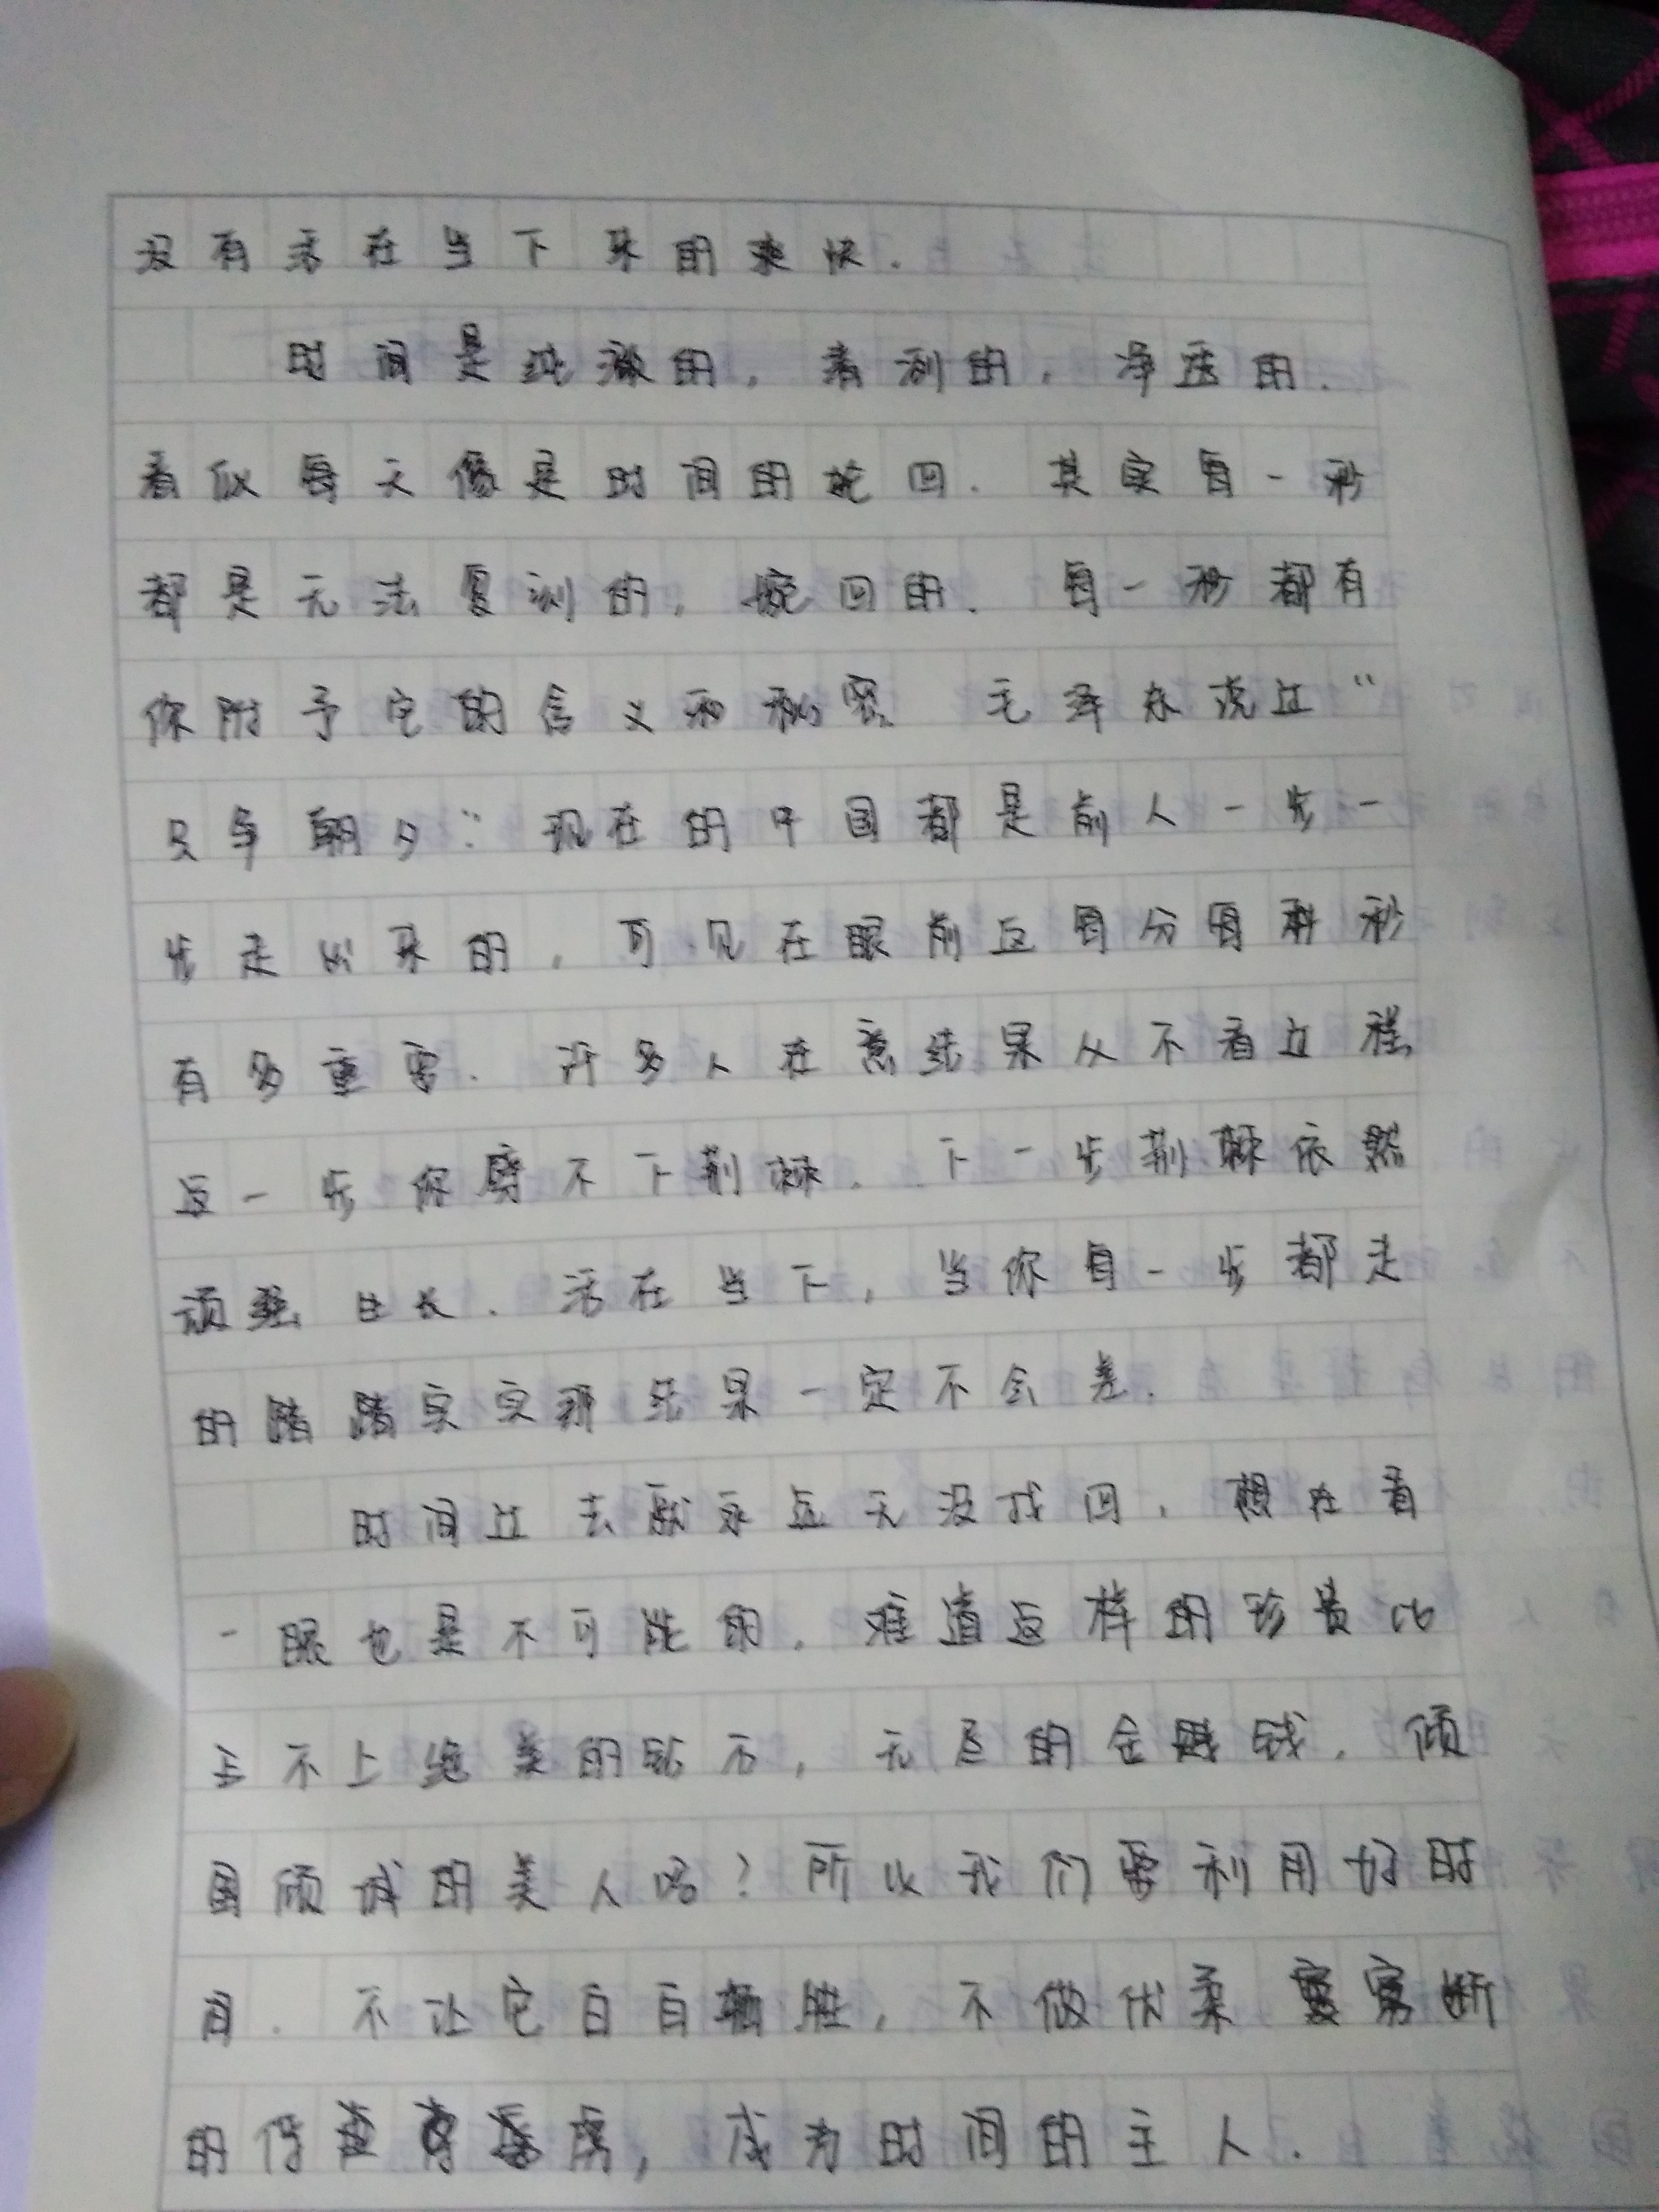 没有活在当下来的爽快.
时间是纯澈的,清澈的,净透的.
看似每天像是时间的轮回.其实每一秒
都是无法复制的,挽回的.每一秒都有
你附予它的含义和秘密 毛泽东说过“
只争朝夕”现在的中国都是前人一步一
步走出来的,可见在眼前这每分每秒
有多重要.许多人在意结果从不看过程
这一步你劈不下荆棘.下一步荆棘依然
顽强生长.活在当下,当你每一步都走
的踏踏实实那结果一定不会差.
时间过去就永远无没找回,想在看
一眼也是不可能的.难道这样的珍贵比
不上绝美的钻石,无尽的金钱.倾
国倾城的美人吗?所以我们要利用好时
间.不让它白白,不做优柔寡断
的俘虏,成为时间的主人.